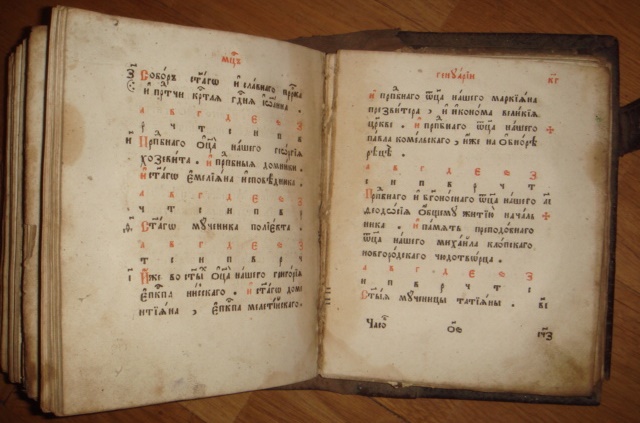 мцъ
з Соборъ стаго и славнаго прⷪ҇рка
и прⷣтчи крⷭ҇тля гдня іѡанна .
а в г д є ѕ з
р ч т с п в
и Прпⷣбнаго ѻц҃а нашего геѡргїа
хозевита . и прпⷣбныя домники .
и стаго емелїана исповѣдника .
а в г д є ѕ з
ч т с п в р
ѳ Стаго мученика полїевкта .
а в г д є ѕ з
т с п в р ч
і Иже во стыⷯ ѻц҃а нашего григорїа
епⷭ҇кпа нисскаго . и стаго доме
нтїана , епⷭ҇кпа мелетїйскаго .
генуарїи кг
и прпⷣбнаго ѻц҃а нашего маркїана
презвитера , и иконома великїа
цркве . и прпⷣбнаго ѻц҃а нашего
павла комельскаго , иже на обнорѣ
рѣцѣ .
а в г д є ѕ з
с п в р ч т
Прпⷣбнаго и бгоноснаго ѻц҃а нашего аі
деодосїа общему житїю началь
ника . и память преподобнаго
ѻц҃а нашего михаила клопскаго
новгородскаго чюдотворца .
а в г д є ѕ з
п в р ч т с
Стыя мученицы татїаны . ві
Часоⷡ ѻе стз